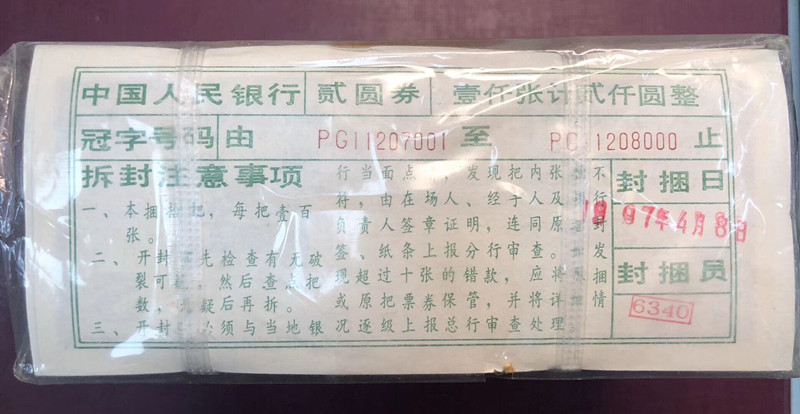 中国人民银行 贰圆券 壹仟张计贰仟圆整
冠字号码由 PG11207001 至 PG 1208000 止
拆封注意事项
一、本捆 把，每把壹百
张。
二、开封 先检查有无破
裂可 ，然后查点把
数， 疑后再拆。
三、开封 必须与当地银
行当面点 ，发现把内张 不
符，由在场人、经手人及 行
负责人签章证明，连同原 封
签、纸条上报分行审查。 发
现超过十张的错款，应将 捆
或原把票券保管，并将详 情
况逐级上报总行审查处理
封捆日
19 7年4月8日
封捆员
6340